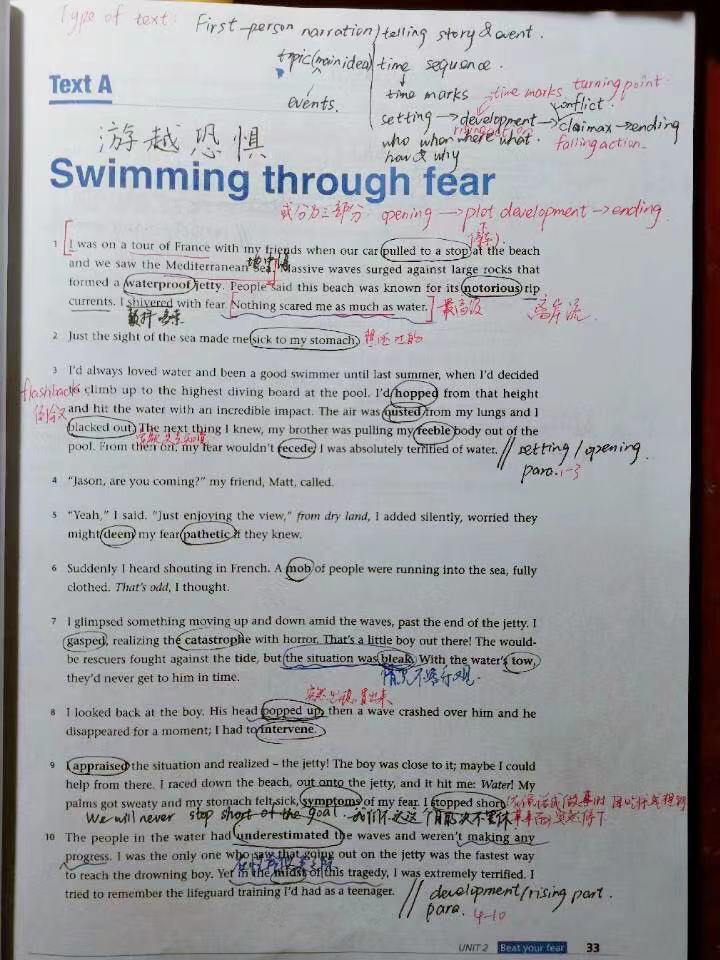 Type of text: First-person narration / telling story & event.
topic (main idea) time sequence.
time marks time marks turning point
events. conflict.
setting → development → climax → ending
rising action falling action
who when where what.
how & why
Text A
游越恐惧
Swimming through fear
或分为三部分: opening → plot development → ending
1 I was on a tour of France with my friends when our car pulled to a stop at the beach
(停车)
地中海
and we saw the Mediterranean Sea. Massive waves surged against large rocks that
formed a waterproof jetty. People said this beach was known for its notorious rip
currents. I shivered with fear. Nothing scared me as much as water. 最高级 离岸流
颤抖
2 Just the sight of the sea made me sick to my stomach.
3 I'd always loved water and been a good swimmer until last summer, when I'd decided
flashback
to climb up to the highest diving board at the pool. I'd hopped from that height
倒叙
and hit the water with an incredible impact. The air was ousted from my lungs and I
blacked out. The next thing I knew, my brother was pulling my feeble body out of the
pool. From then on, my fear wouldn't recede; I was absolutely terrified of water. // setting / opening
para. 1-3
4 "Jason, are you coming?" my friend, Matt, called.
5 "Yeah," I said. "Just enjoying the view," from dry land, I added silently, worried they
might deem my fear pathetic if they knew.
6 Suddenly I heard shouting in French. A mob of people were running into the sea, fully
clothed. That's odd, I thought.
7 I glimpsed something moving up and down amid the waves, past the end of the jetty. I
gasped, realizing the catastrophe with horror. That's a little boy out there! The would-
be rescuers fought against the tide, but the situation was bleak. With the water's tow,
they'd never get to him in time. 情况不容乐观.
突然出现, 冒出来
8 I looked back at the boy. His head popped up, then a wave crashed over him and he
disappeared for a moment; I had to intervene.
9 I appraised the situation and realized – the jetty! The boy was close to it; maybe I could
help from there. I raced down the beach, out onto the jetty, and it hit me: Water! My
palms got sweaty and my stomach felt sick, symptoms of my fear. I stopped short.
We will never stop short of the goal.
10 The people in the water had underestimated the waves and weren't making any
progress. I was the only one who saw that going out on the jetty was the fastest way
to reach the drowning boy. Yet in the midst of this tragedy, I was extremely terrified. I
tried to remember the lifeguard training I'd had as a teenager. // development / rising part.
para. 4-10
UNIT 2 Beat your fear 33